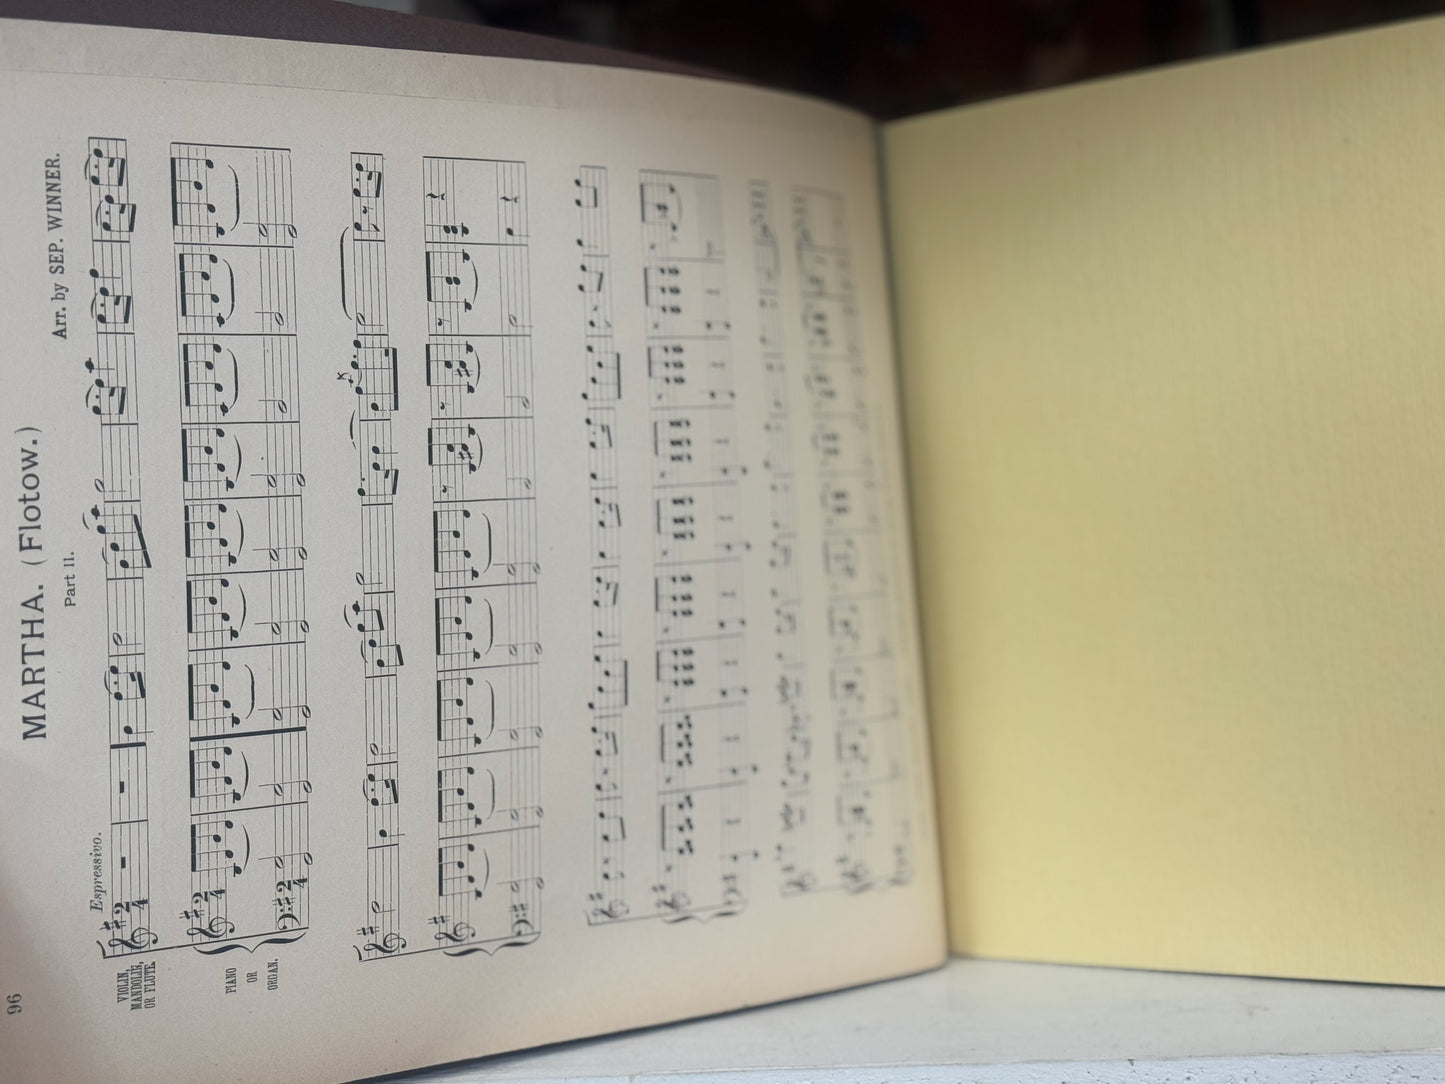 96
MARTHA. (Flotow.)
Part II.
Arr. by SEP. WINNER.
Espressivo.
VIOLIN,
MANDOLIN,
OR FLUTE.
PIANO
OR
ORGAN.